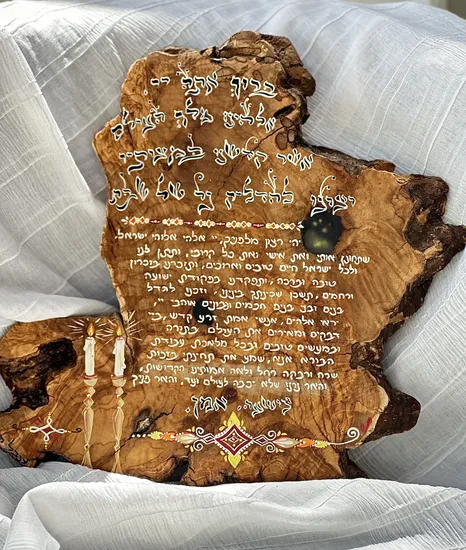 ברוך אתה יי
אלהינו מלך העולם
אשר קדשנו במצותיו
וצונו להדליק נר של שבת
יהי רצון מלפניך, יי אלהי אלוהי ישראל,
שתחונן אותי ואת אישי ואת כל קרובי, ותתן לנו
ולכל ישראל חיים טובים וארוכים, ותזכרנו בזכרון
טובה וברכה, ותפקדנו בפקודת ישועה
ורחמים, ותשכן שכינתך בינינו, וזכנו לגדל
בנים ובני בנים חכמים ונבונים אוהבי יי,
יראי אלהים, אנשי אמת זרע קדש, בי
דבקים ומאירים את העולם בתורה
ובמעשים טובים ובכל מלאכת עבודת
הבורא אנא, שמע את תחינתי בזכות
שרה ורבקה רחל ולאה אמותינו הקדושות,
והאר נרנו שלא יכבה לעולם ועד, והאר פניך
ונושעה. אמן.